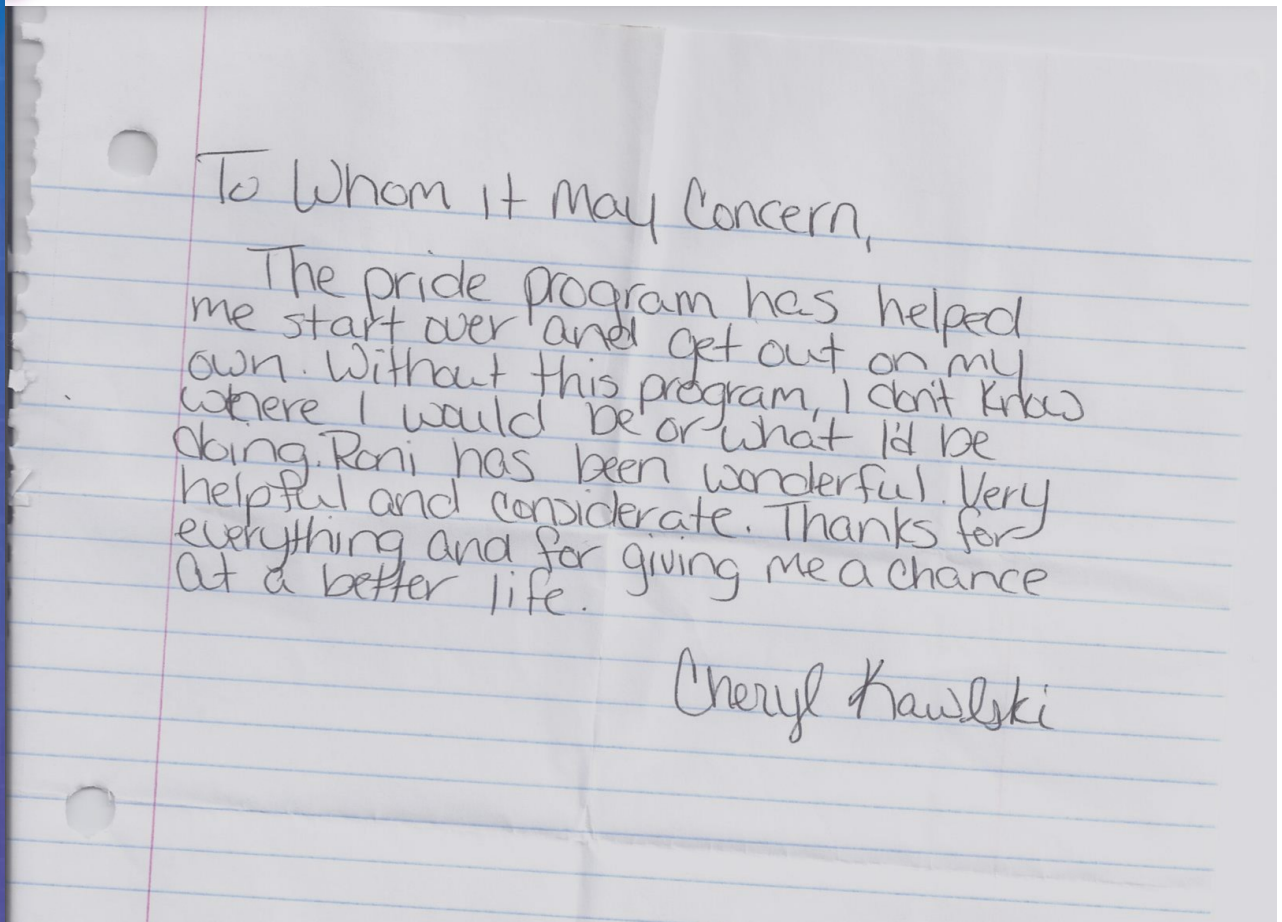 To Whom It May Concern,
The pride program has helped
me start over and get out on my
own. Without this program, I don't know
where I would be or what I'd be
doing. Roni has been wonderful. Very
helpful and considerate. Thanks for
everything and for giving me a chance
at a better life.
Cheryl Kawlski